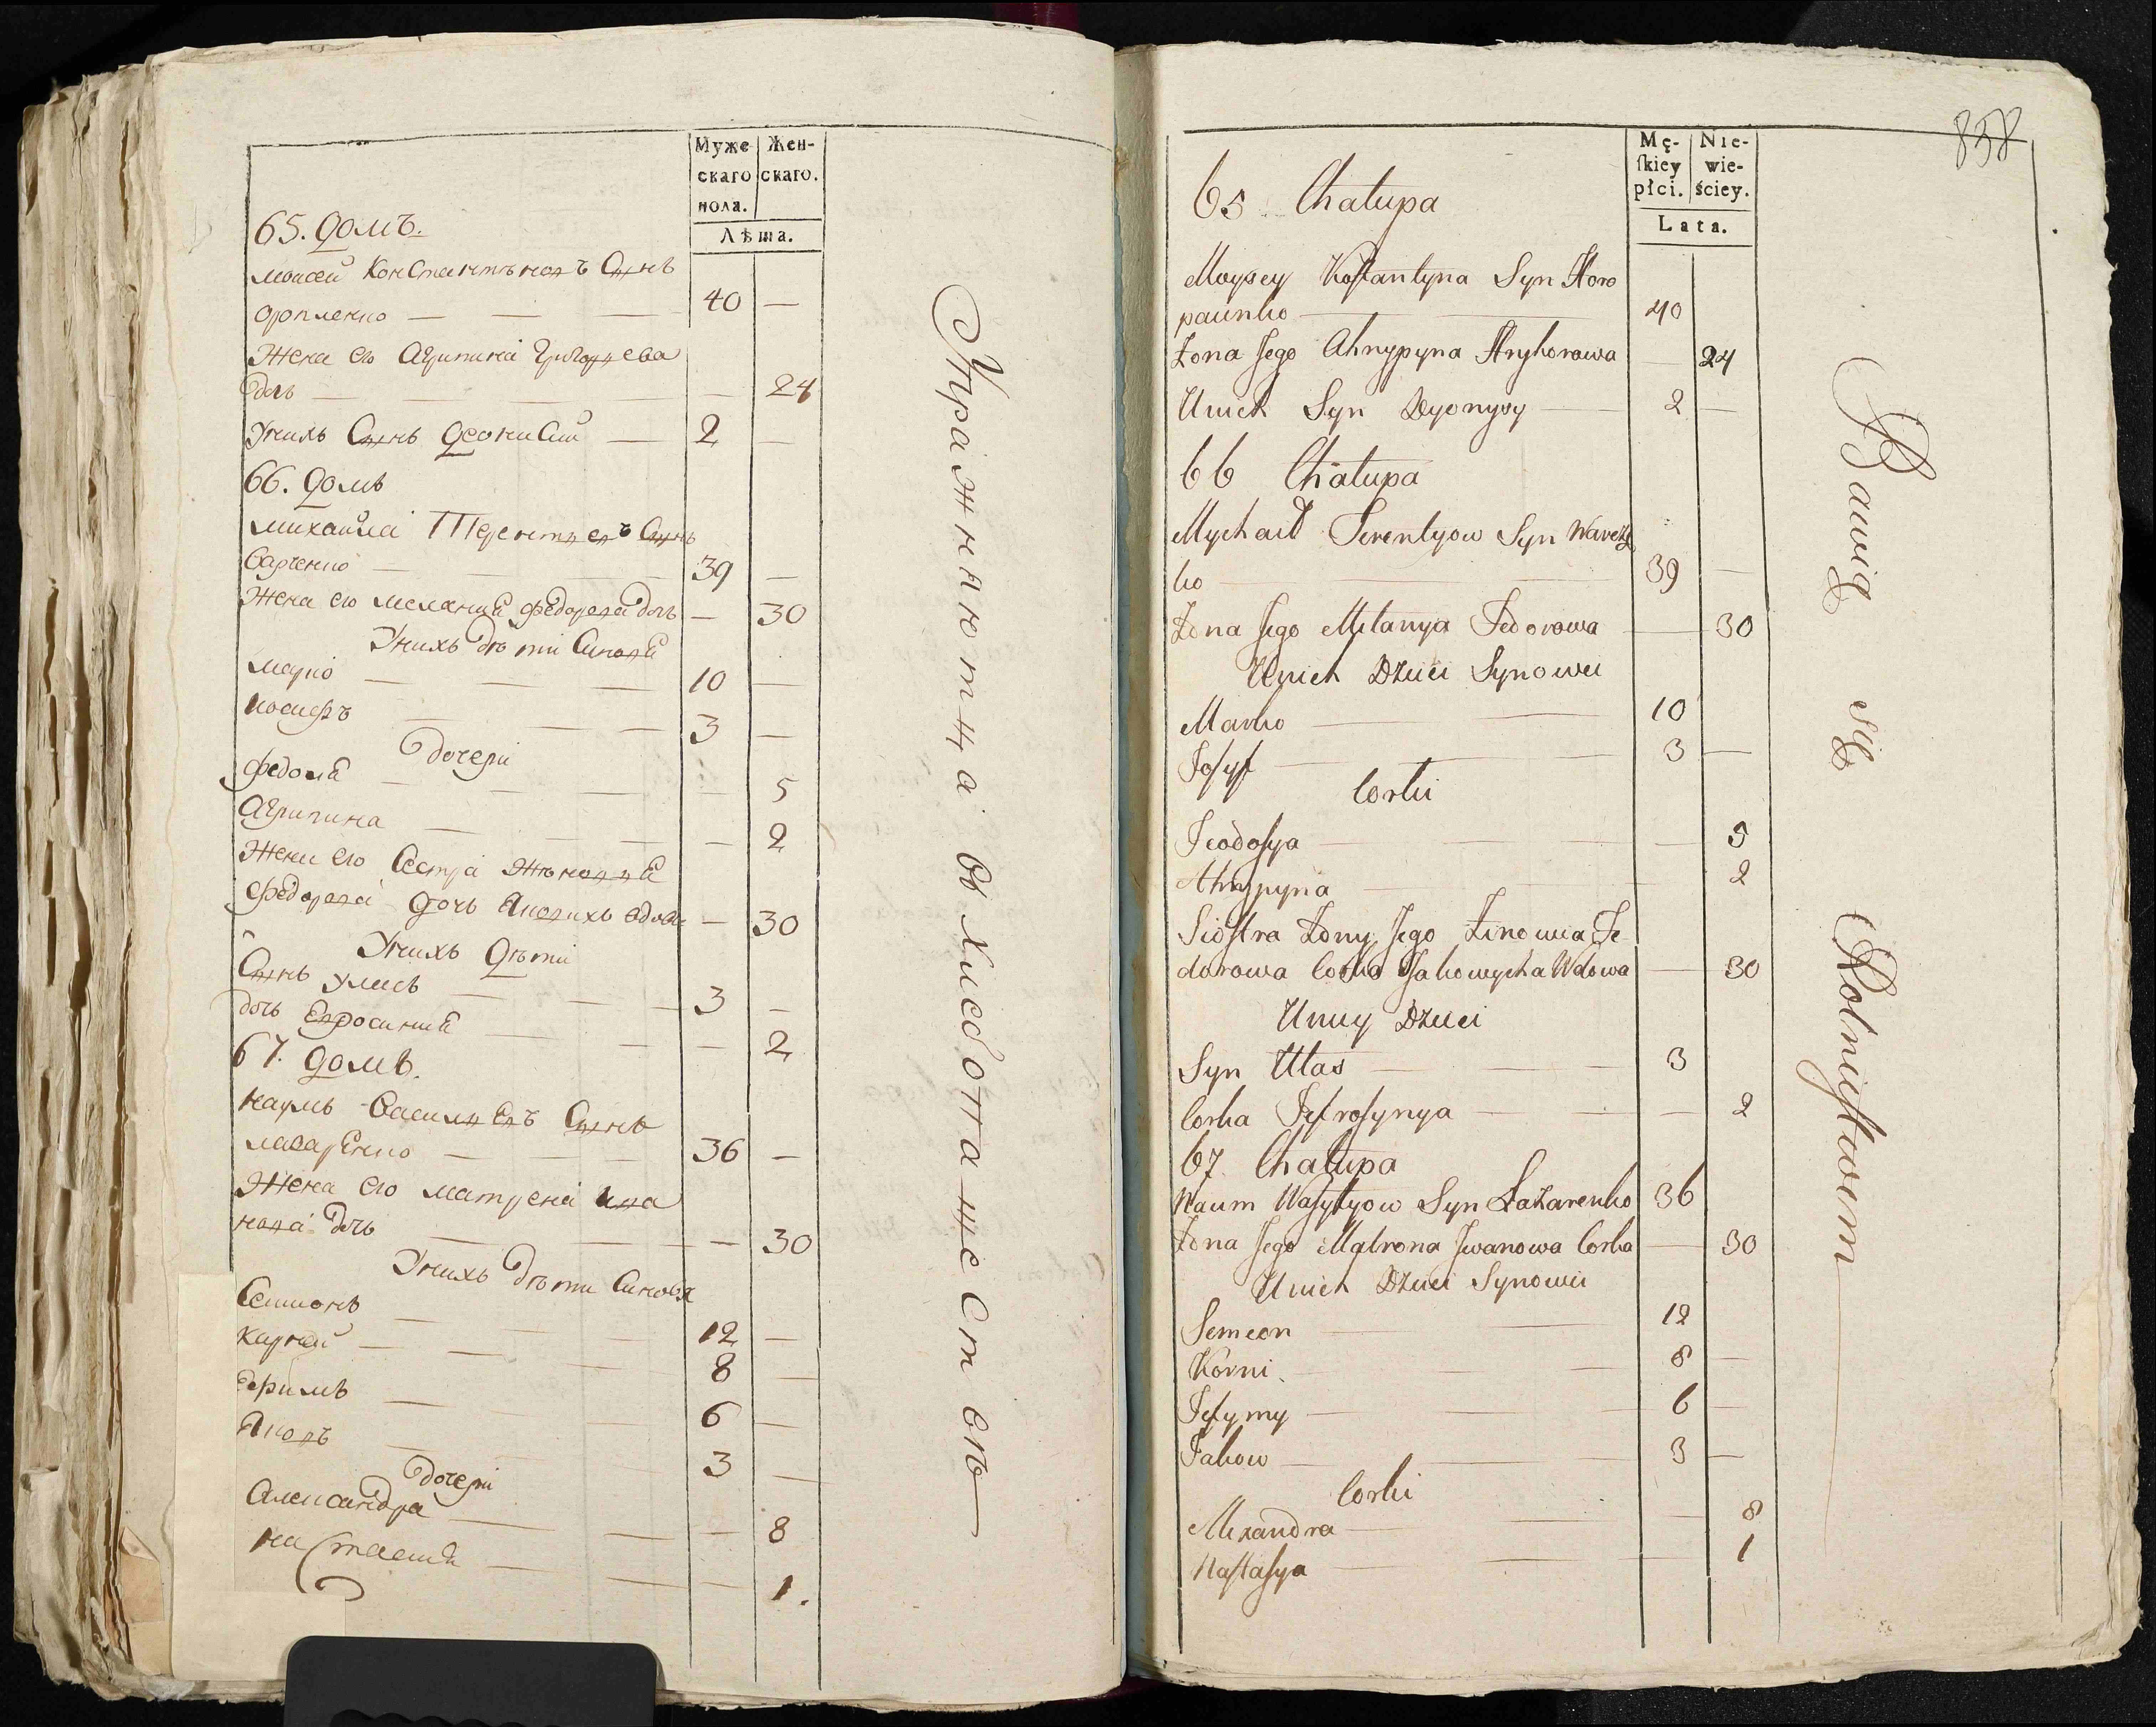 Муже
скаго
пола.
Жен-
скаго.
Лѣта.
65. домъ.
Моисей Константиновъ Сынъ
40 —
Жена его Агрипина Григорьева
дочь — — 24
Унихъ Сынъ Деонисий — 2 —
66. домъ
Михайла Терентьевъ Сынъ
Варченко — 39 —
Жена его Мелания Федорова дочь — 30
Унихъ дѣти Синовя
Марко — 10 —
Иосифъ — 3 —
дочери
Федося — — 5
Агрипина — — 2
Жени его Сестра Жѣновия
Федорова дочь Яковихъ вдова — 30
Унихъ дѣти
Сынъ Уласъ — 3 —
дочь Ефросиния — — 2
67. домъ.
Наумъ Васильевъ Сынъ
Лазаренко — 36 —
Жена его Матрена Ива
нова дочь — — 30
Унихъ дѣти Синовя
Семионъ — 12 —
Карней — 8 —
Ефимъ — 6 —
Яковъ — 3 —
дочери
Александра — — 8
Настасия — — 1.
Упражняютца в хлебопашествъ
858
Mę-
ſkiey
płci.
Nie-
wie-
ściey.
Lata.
65 Chałupa
Moysey Kostantyna Syn Horo
paenko — 40
Żona Jego Ahrypyna Hryhorowa — 24
Unich Syn Dyonysy — 2 —
66 Chałupa
Mychail Terentyow Syn Warcze
ko — 39 —
Żona Jego Melanya Fedorowa — 30
Unich Dzieci Synowei
Marko — 10
Josyf — 3 —
Corki
Teodosya — — 5
Ahrypyna — 2
Siostra Żony Jego Zinowia Fe
dorowa Corka Jakowycha Wdowa — 30
Uniey Dzieci
Syn Ułas — 3
Corka Jefrosynya — — 2
67 Chałupa
Naum Wasylyow Syn Łazarenko 36
Żona Jego Matrona Jwanowa Corka — 30
Unich Dzieci Synowei
Semeon — 12
Korni — 8 —
Jefymy — 6 —
Jakow — 3 —
Corki
Alexandra — — 8
Nastasya — — 1
Bawią się Rolnictwem